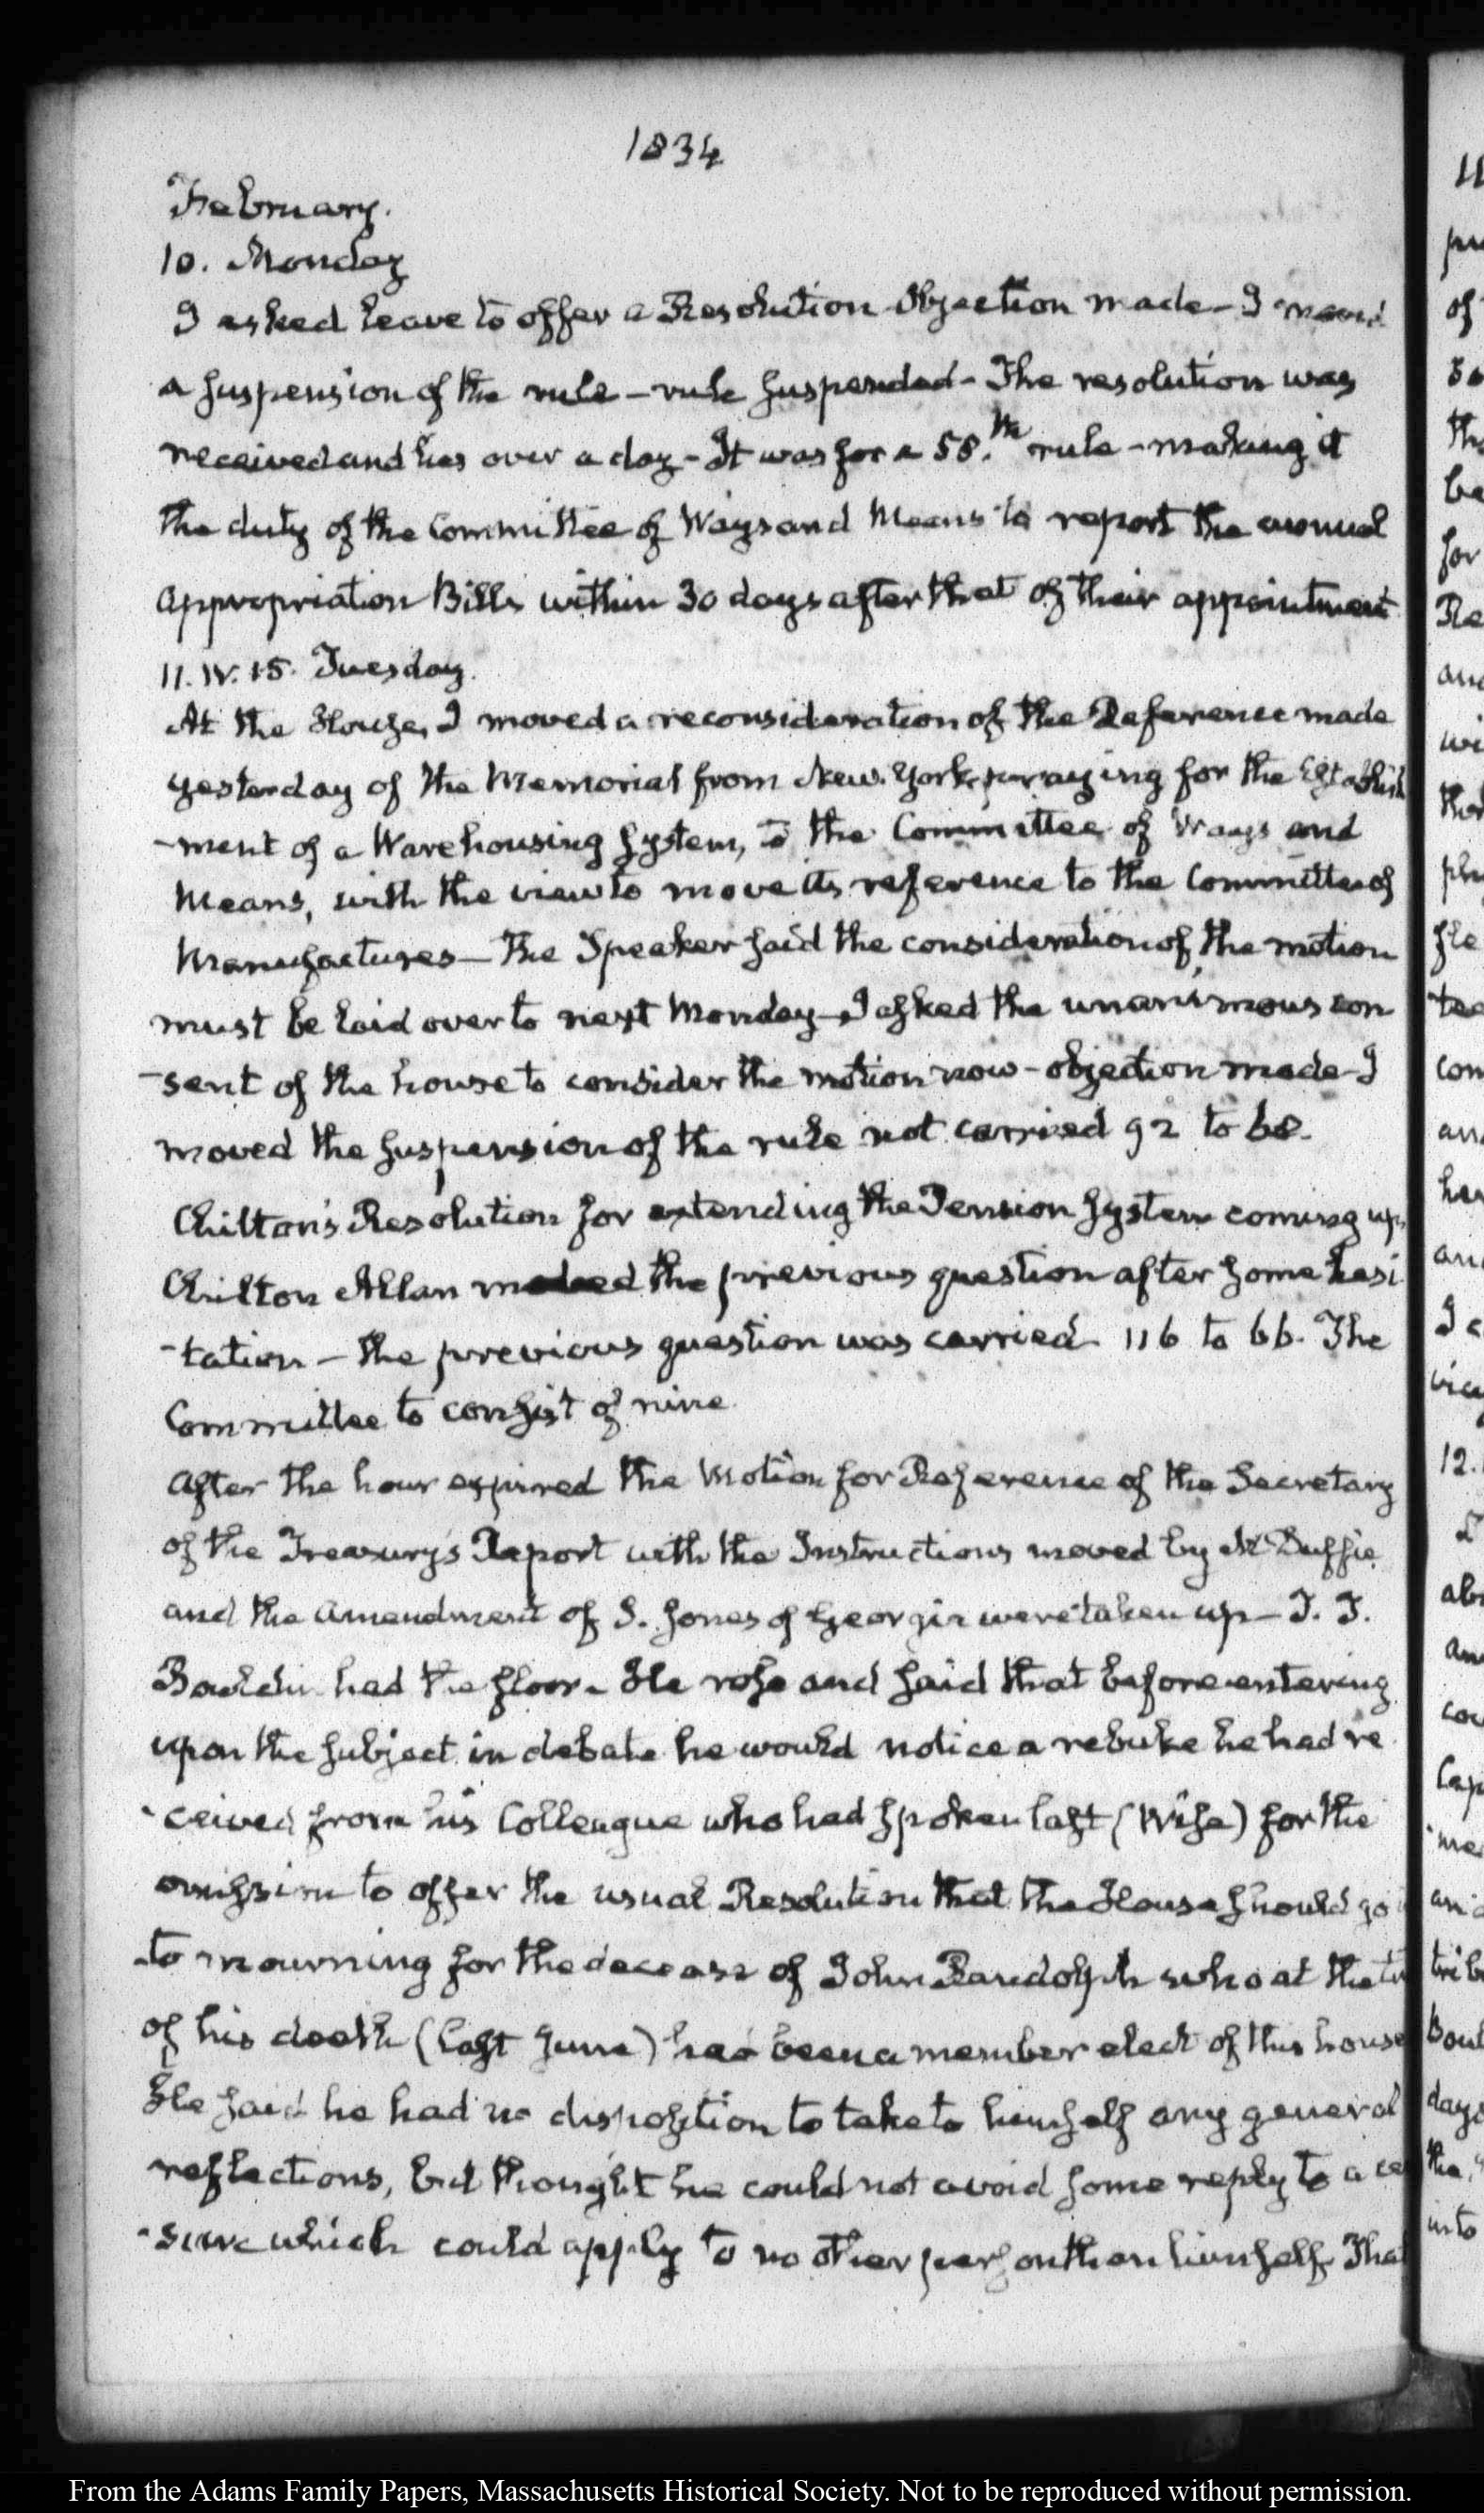 1834
February.
10. Monday
I asked leave to offer a Resolution Objection made - I moved
a suspension of the rule - rule suspended - The resolution was
received and lies over a day - It was for a 58.th rule - making it
the duty of the Committee of Ways and Means to report the annual
appropriation Bills within 30 days after that of their appointment
11. IV. 15. Tuesday.
At the House, I moved a reconsideration of the Reference made
yesterday of the Memorial from New-York, praying for the Establish
-ment of a Warehousing System, to the Committee of Ways and
Means, with the view to move its reference to the Committee of
Manufactures - The Speaker said the consideration of the motion
must be laid over to next Monday - I asked the unanimous con
-sent of the house to consider the motion now - objection made - I
moved the suspension of the rule not carried 92 to 68.
Chilton's Resolution for extending the Pension System coming up,
Chilton Allan moved the previous question after some hesi
-tation - the previous question was carried 116 to 66. The
Committee to consist of nine
After the hour expired the Motion for Reference of the Secretary
of the Treasury's Report with the Instructions moved by McDuffie
and the amendment of S. Jones of Georgia were taken up - T. T.
Bouldin had the floor - He rose and said that before entering
upon the subject in debate he would notice a rebuke he had re
-ceived from his Colleague who had spoken last (Wise) for the
omission to offer the usual Resolution that the House should go
to mourning for the decease of John Randolph who at the
of his death (last June) had been a member elect of this house
He said he had no disposition to take to himself any general
reflections, but thought he could not avoid some reply to a ce
-sure which could apply to no other person than himself. That
From the Adams Family Papers, Massachusetts Historical Society. Not to be reproduced without permission.